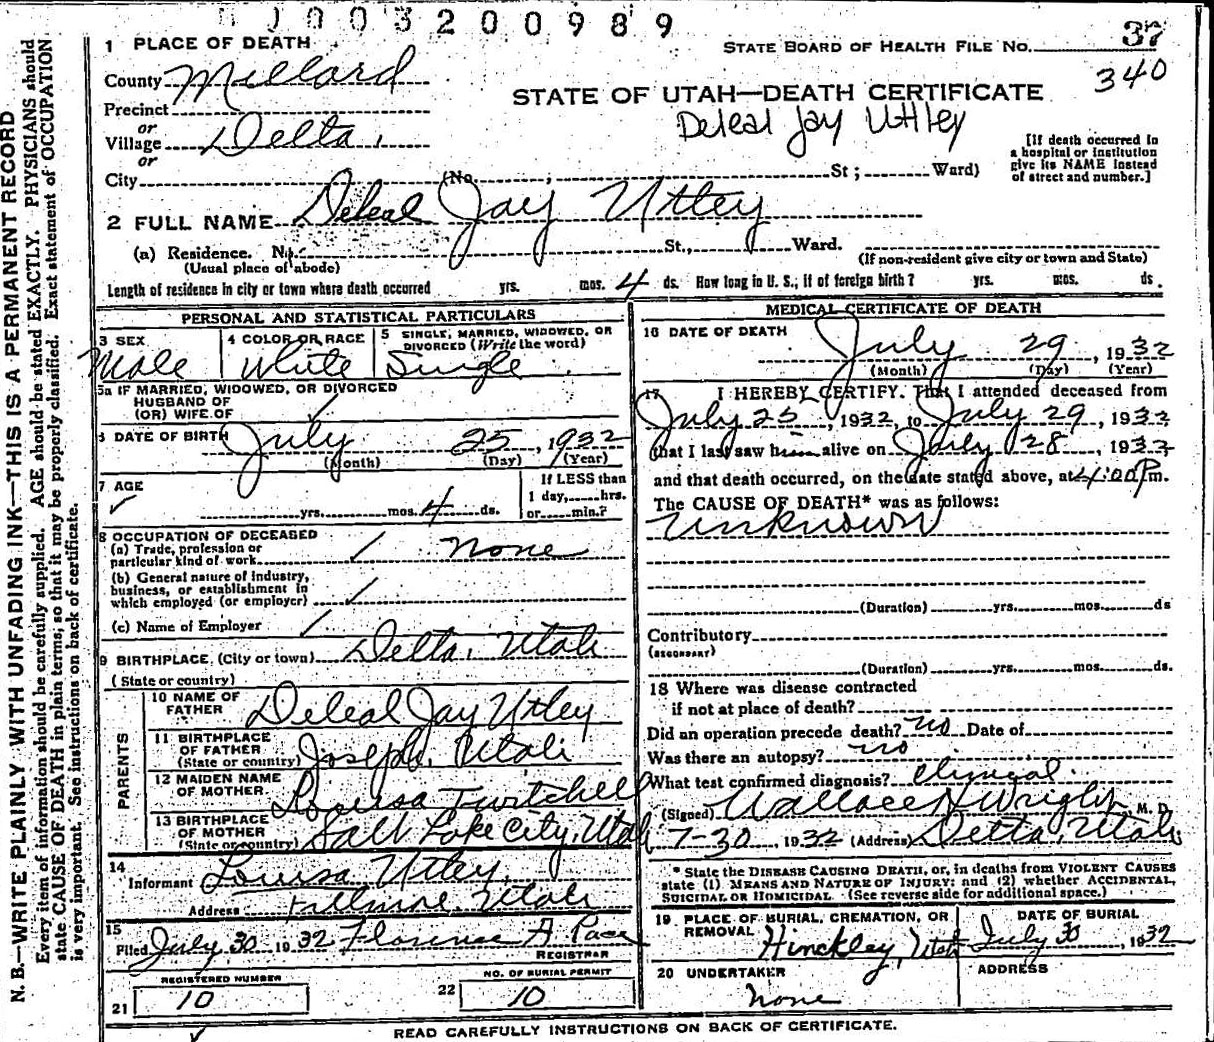 0 0 3 2 0 0 9 8 9
1 PLACE OF DEATH
STATE BOARD OF HEALTH FILE NO. 37
340
County Millard
STATE OF UTAH—DEATH CERTIFICATE
Precinct
Deleal Jay Uttley
or
Village Delta,
or
[If death occurred in a hospital or institution give its NAME instead of street and number.]
City (No. ; St ; Ward)
2 FULL NAME Deleal Jay Uttey
(a) Residence. No. St., Ward.
(Usual place of abode) (If non-resident give city or town and State)
Length of residence in city or town where death occurred yrs. mos. 4 ds. How long in U. S.; if of foreign birth? yrs. mos. ds.
PERSONAL AND STATISTICAL PARTICULARS
3 SEX Male
4 COLOR OR RACE White
5 SINGLE, MARRIED, WIDOWED, OR DIVORCED (Write the word) Single
5a IF MARRIED, WIDOWED, OR DIVORCED
HUSBAND OF
(OR) WIFE OF
6 DATE OF BIRTH July 25, 1932
(Month) (Day) (Year)
7 AGE yrs. mos. 4 ds.
If LESS than
1 day, hrs.
or min.?
8 OCCUPATION OF DECEASED
(a) Trade, profession or
particular kind of work None
(b) General nature of industry,
business, or establishment in
which employed (or employer)
(c) Name of Employer
9 BIRTHPLACE (City or town) Delta, Utah
(State or country)
PARENTS
10 NAME OF FATHER Deleal Jay Utley
11 BIRTHPLACE OF FATHER (State or country) Joseph, Utah
12 MAIDEN NAME OF MOTHER Louisa Twitchell
13 BIRTHPLACE OF MOTHER (State or country) Salt Lake City, Utah
14 Informant Louisa Utley,
Address Fillmore, Utah
15 Filed July 30 1932 Florence A Pace
REGISTRAR
REGISTERED NUMBER
21 10
NO. OF BURIAL PERMIT
22 10
MEDICAL CERTIFICATE OF DEATH
16 DATE OF DEATH July 29, 1932
(Month) (Day) (Year)
17 I HEREBY CERTIFY. That I attended deceased from
July 25, 1932, to July 29, 1932
that I last saw him alive on July 28, 1932
and that death occurred, on the date stated above, at 4:00 Pm.
The CAUSE OF DEATH* was as follows:
Unknown
(Duration) yrs. mos. ds
Contributory
(SECONDARY)
(Duration) yrs. mos. ds.
18 Where was disease contracted
if not at place of death?
Did an operation precede death? no Date of
Was there an autopsy? no
What test confirmed diagnosis? Clinical.
(Signed) Wallace Wright M. D.
7-30, 1932 (Address) Delta, Utah
* State the DISEASE CAUSING DEATH, or, in deaths from VIOLENT CAUSES
state (1) MEANS AND NATURE OF INJURY; and (2) whether ACCIDENTAL,
SUICIDAL OR HOMICIDAL. (See reverse side for additional space.)
19 PLACE OF BURIAL, CREMATION, OR REMOVAL Hinckley, Utah
DATE OF BURIAL July 30, 1932
20 UNDERTAKER none
ADDRESS
READ CAREFULLY INSTRUCTIONS ON BACK OF CERTIFICATE.
N. B.—WRITE PLAINLY WITH UNFADING INK—THIS IS A PERMANENT RECORD
Every item of information should be carefully supplied. AGE should be stated EXACTLY. PHYSICIANS should
state CAUSE OF DEATH in plain terms, so that it may be properly classified. Exact statement of OCCUPATION
is very important. See instructions on back of certificate.